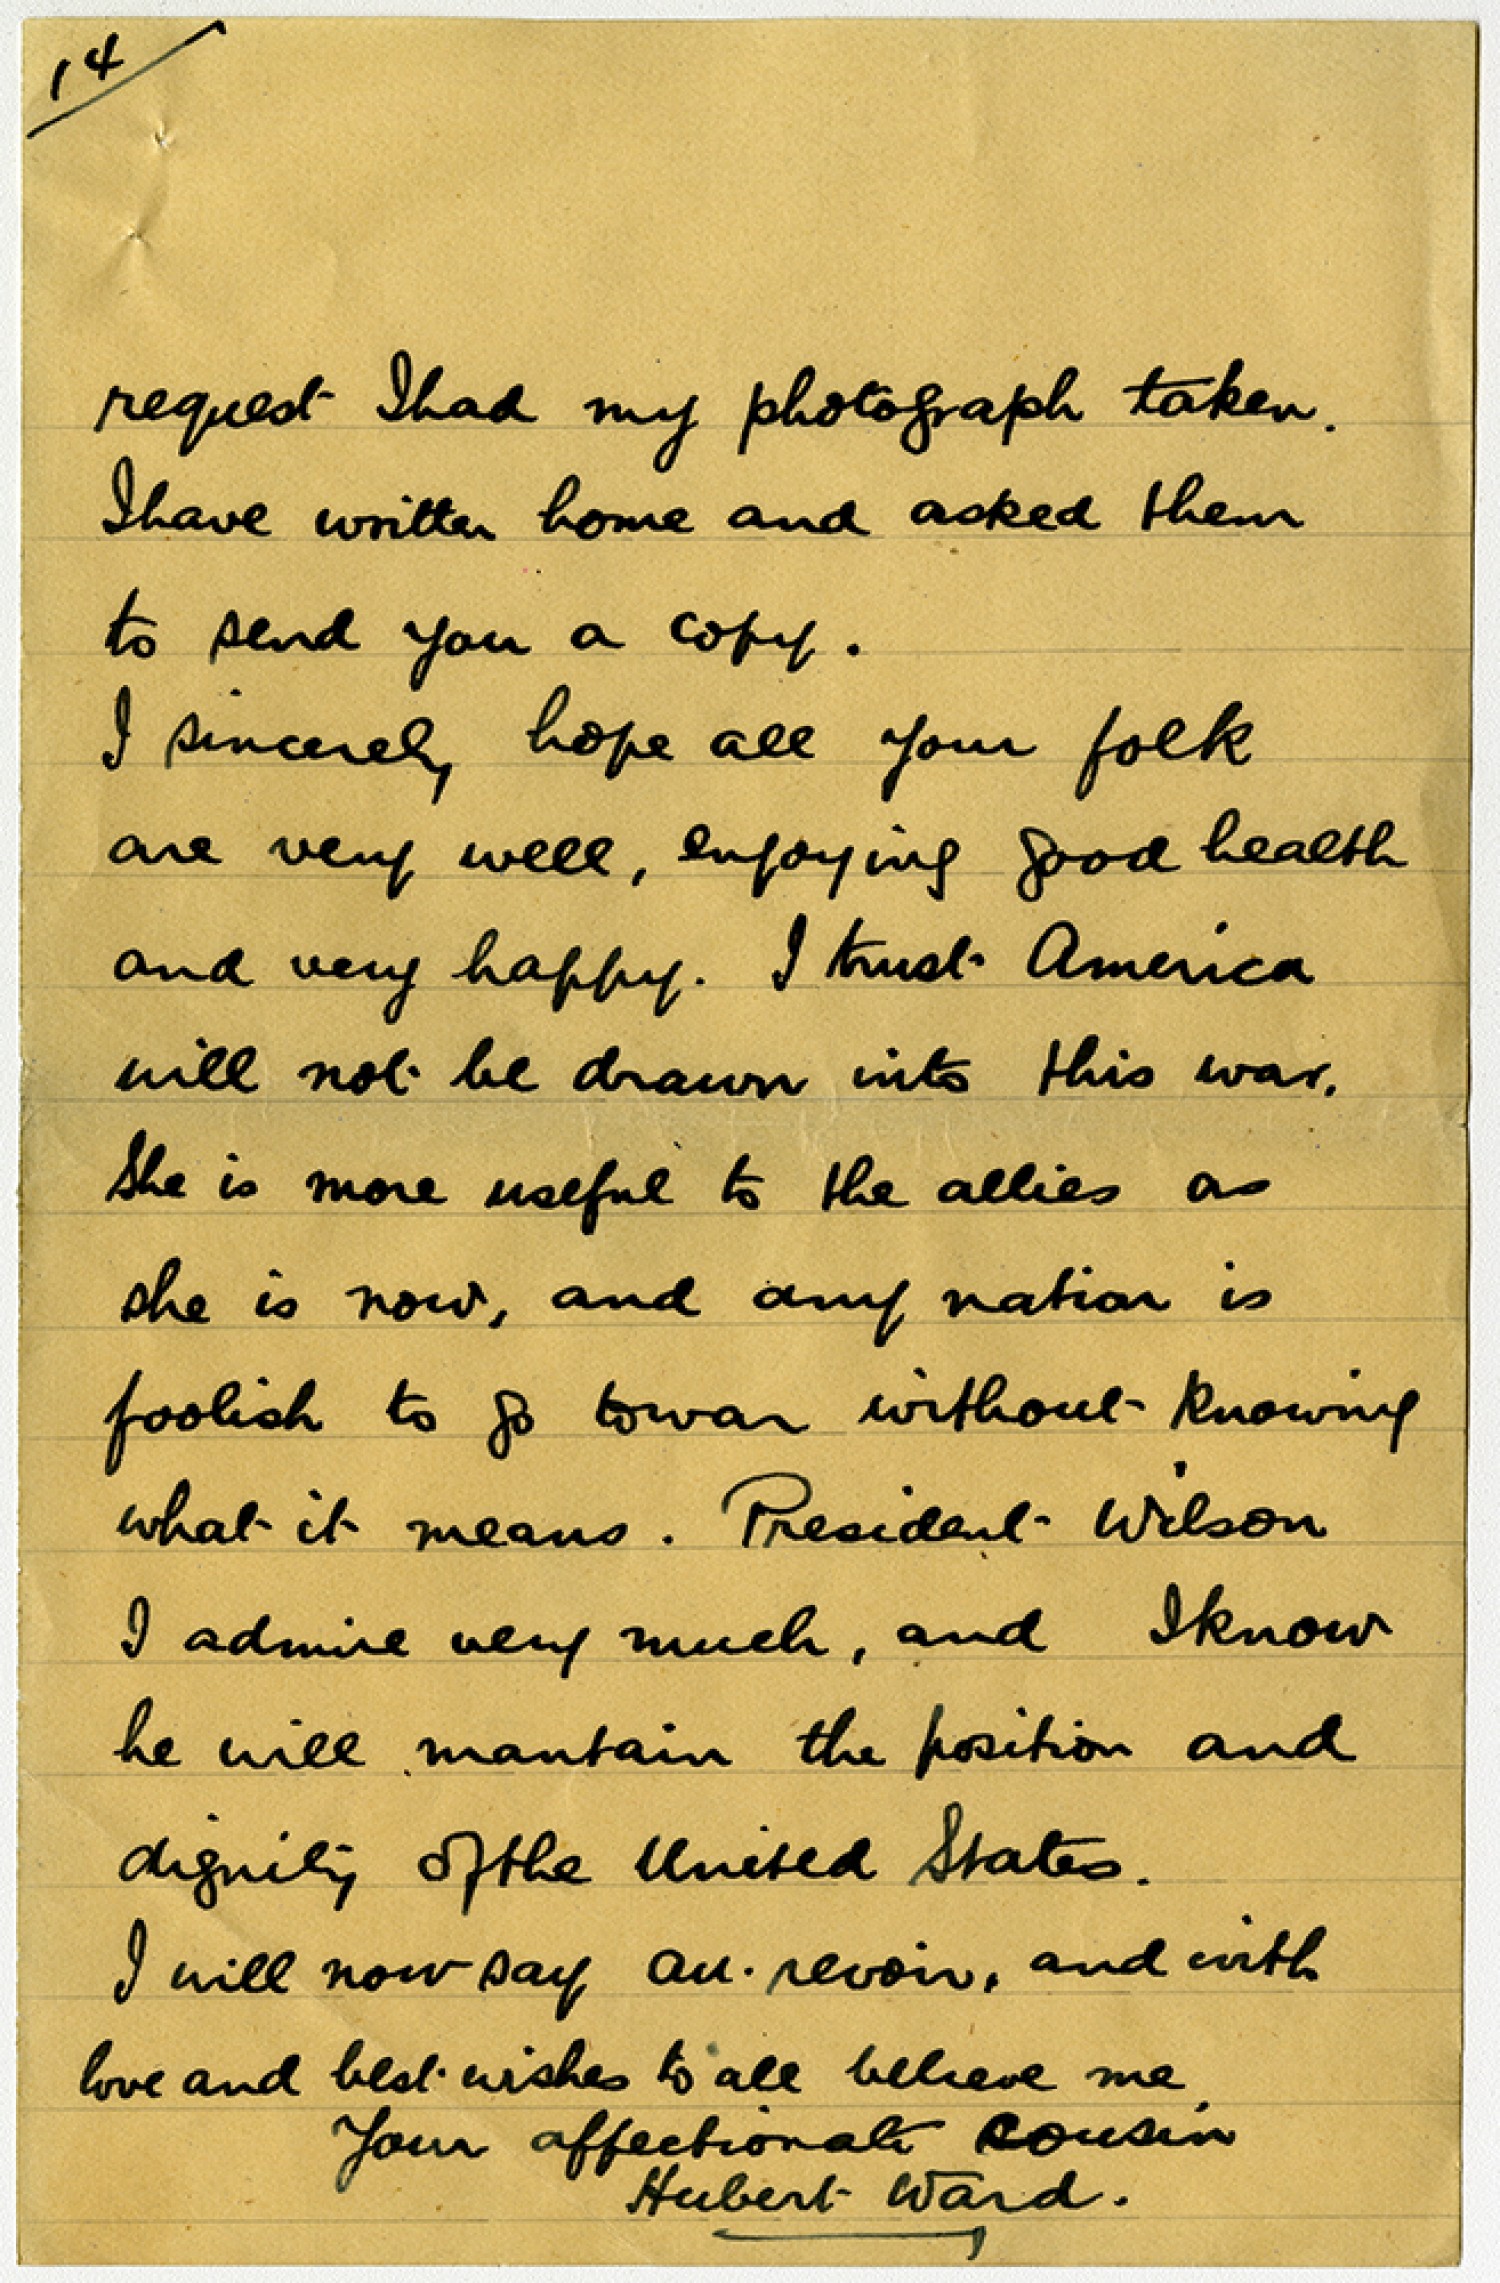 14
request I had my photograph taken.
I have written home and asked them
to send you a copy.
I sincerely hope all your folk
are very well, enjoying good health
and very happy. I trust America
will not be drawn into this war.
She is more useful to the allies as
she is now, and any nation is
foolish to go to war without knowing
what it means. President Wilson
I admire very much, and I know
he will mantain the position and
dignity of the United States.
I will now say au. revoir, and with
love and best wishes to all believe me
Your affectionate cousin
Hubert Ward.